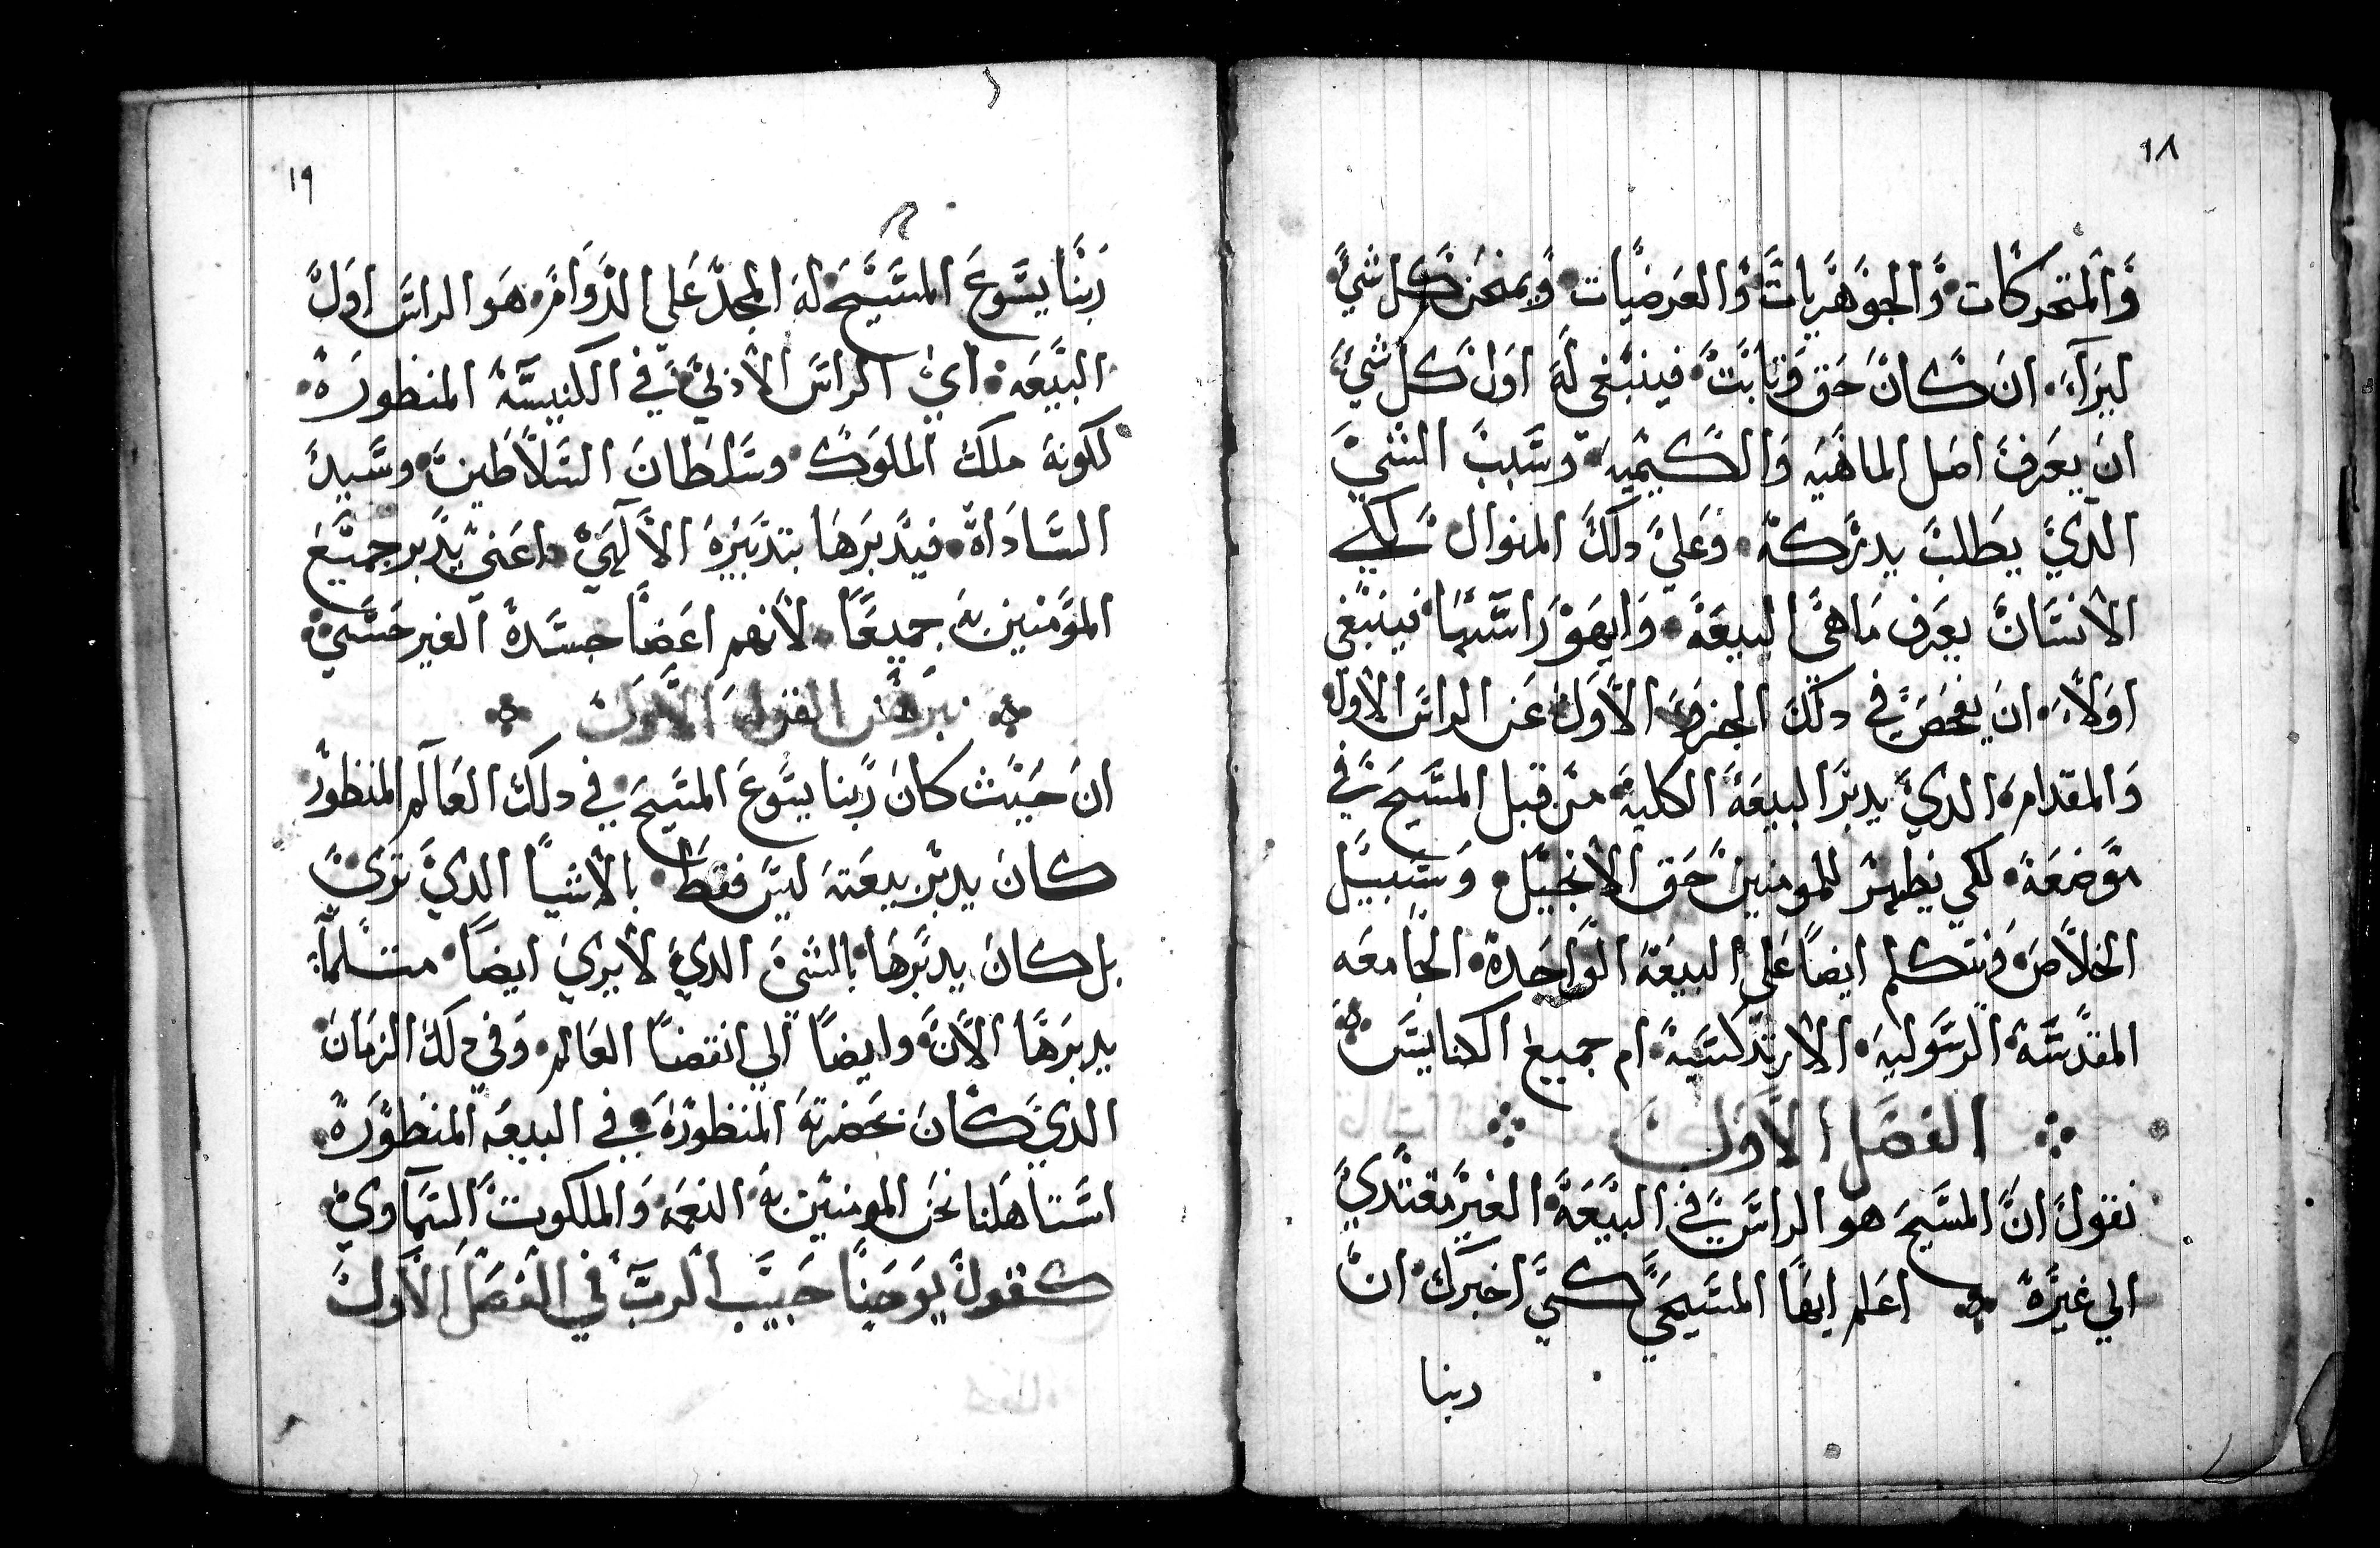 ١٨
والمتحركات والجوهريات والعرضيات ويمتحن كل شي
ليراه ان كان حق وثابت فينبغي له اول كل شي
ان يعرف اصل الماهيه والكيميه وسبب الشي
الدي يطلب يدركه وعلي دلك المنوال لكي
الانسان يعرف ماهي البيعة وايهو راسها فينبغي
اولا ان يفحص في دلك الجزو الاول عن الراس الاول
والمقدام الدي يدبر البيعة الكلية من قبل المسيح في
موضعه لكي يظهر للمومنين حق الانجيل وسبيل
الخلاص ونتكلم ايضا علي البيعة الواحدة الجامعه
المقدسة الرسوليه الارتدكسية ام جميع الكنايس
الفصل الاول
نقول ان المسيح هو الراس في البيعة الغير مقتدي
الي غيره اعلم ايها المسيحي كي اخبرك ان
ربنا
١٩
ربنا يسوع المسيح له المجد علي الدوام هو الراس اول
البيعه اي الراس الأدلي في الكنيسة المنظورة
لكونه ملك الملوك وسلطان السلاطين وسيد
الساداة فيدبرها بتدبيره الالهي اعني يدبر جميع
المومنين به جميعا لانهم اعضا جسده الغير حسي
برهان القول الاول
ان حيث كان ربنا يسوع المسيح في دلك العالم المنظور
كان يدبر بيعته ليس فقط بالاشيا الدي تري
بل كان يدبرها بالشي الدي لايري ايضا متلما
يدبرها الان وايضا الي انقضا العالم وفي دلك الزمان
الدي كان بحضرته المنظورة في البيعه المنظورة
استاهلنا نحن المومنين به النعمه والملكوت السماوي
كقول يوحنا حبيب الرب في الفصل الاول